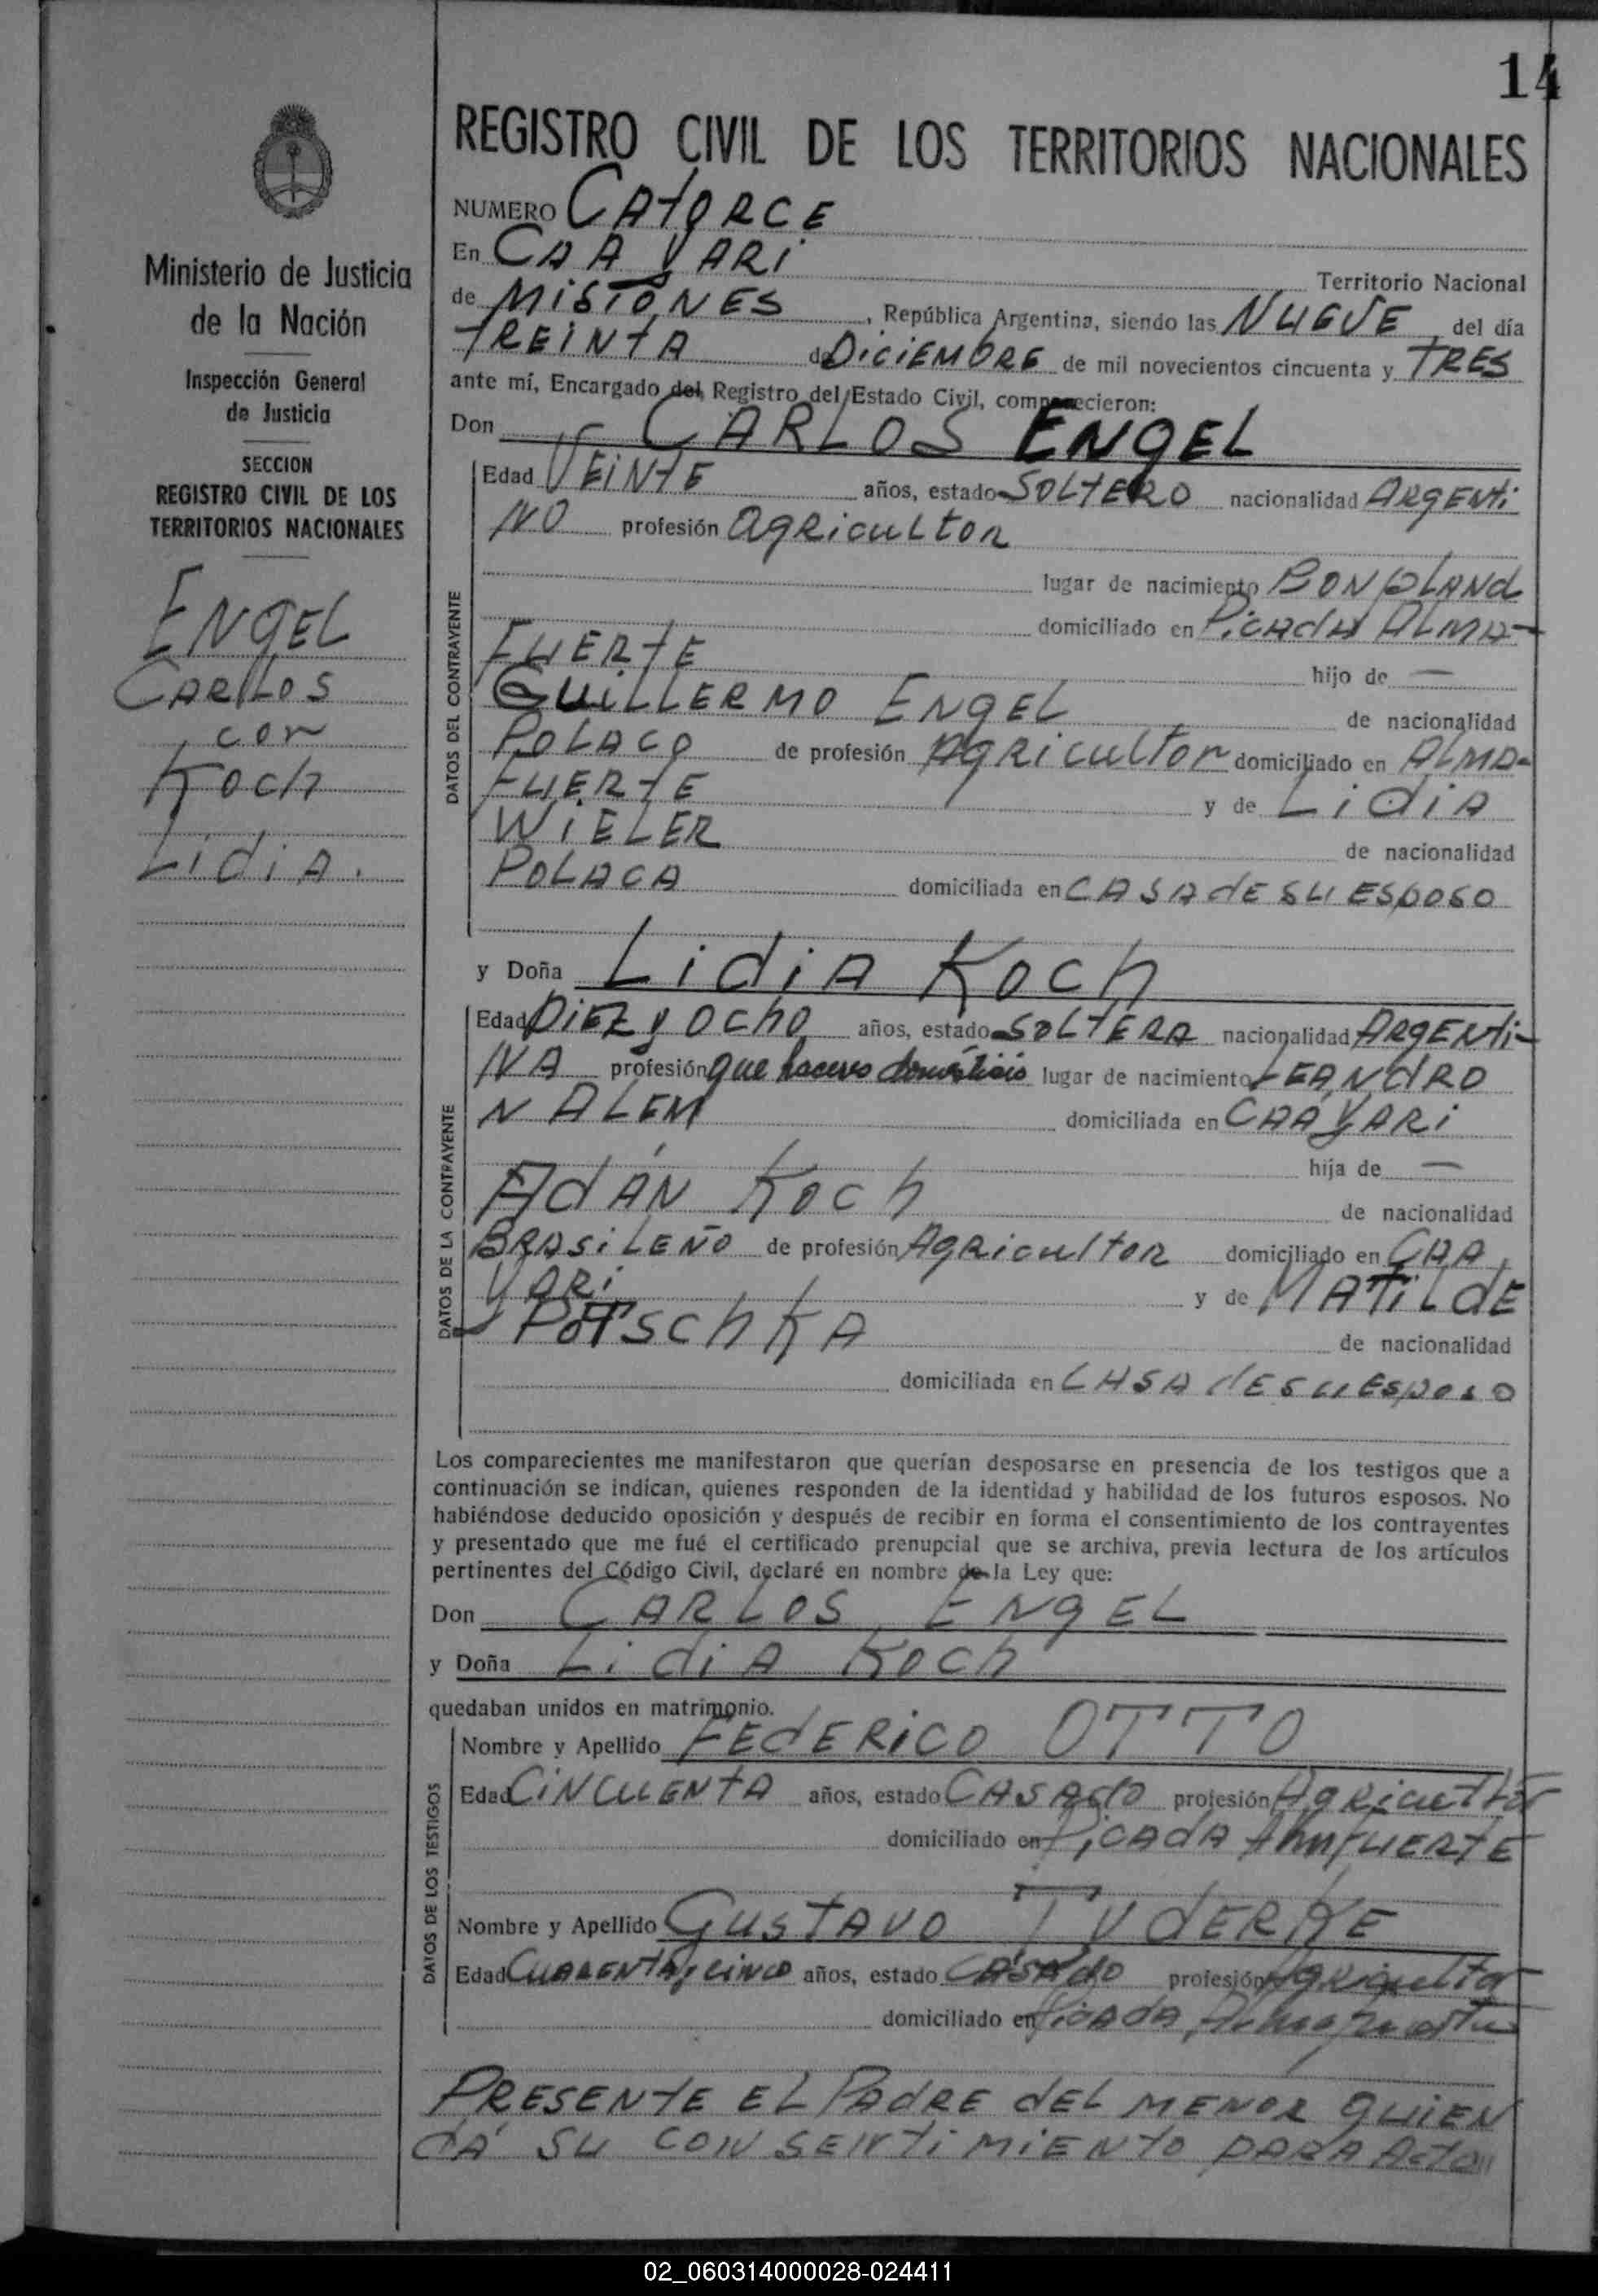 14
REGISTRO CIVIL DE LOS TERRITORIOS NACIONALES
NUMERO CATORCE
En CAA YARI
Territorio Nacional
de MISIONES, República Argentina, siendo las NUEVE del día
TREINTA de DICIEMBRE de mil novecientos cincuenta y TRES
ante mí, Encargado del Registro del Estado Civil, comparecieron:
Don CARLOS ENGEL
Edad VEINTE años, estado SOLTERO nacionalidad ARGENTI
NO profesión AGRICULTOR
lugar de nacimiento BONPLAND
domiciliado en PICADA ALMA-
FUERTE hijo de —
GUILLERMO ENGEL de nacionalidad
POLACO de profesión AGRICULTOR domiciliado en ALMA-
FUERTE y de LIDIA
WIELER de nacionalidad
POLACA domiciliada en CASA DE SU ESPOSO
DATOS DEL CONTRAYENTE
y Doña LIDIA KOCH
Edad DIEZ Y OCHO años, estado SOLTERA nacionalidad ARGENTI-
NA profesión que haceres domésticos lugar de nacimiento LEANDRO
N ALEM domiciliada en CAÁ YARI
hija de —
ADÁN KOCH de nacionalidad
BRASILEÑO de profesión AGRICULTOR domiciliado en CAA
YARI y de MATILDE
POTSCHKA de nacionalidad
domiciliada en CASA DE SU ESPOSO
DATOS DE LA CONTRAYENTE
Los comparecientes me manifestaron que querían desposarse en presencia de los testigos que a
continuación se indican, quienes responden de la identidad y habilidad de los futuros esposos. No
habiéndose deducido oposición y después de recibir en forma el consentimiento de los contrayentes
y presentado que me fué el certificado prenupcial que se archiva, previa lectura de los artículos
pertinentes del Código Civil, declaré en nombre de la Ley que:
Don CARLOS ENGEL
y Doña LIDIA KOCH
quedaban unidos en matrimonio.
Nombre y Apellido FEDERICO OTTO
Edad CINCUENTA años, estado CASADO profesión AGRICULTOR
domiciliado en PICADA AlmFUERTE
Nombre y Apellido GUSTAVO TYDERKE
Edad CUARENTA y CINCO años, estado CASADO profesión AGRICULTOR
domiciliado en PICADA
DATOS DE LOS TESTIGOS
PRESENTE EL PADRE DEL MENOR QUIEN
DÁ SU CONSENTIMIENTO PARA ACTO
Ministerio de Justicia
de la Nación
Inspección General
de Justicia
SECCION
REGISTRO CIVIL DE LOS
TERRITORIOS NACIONALES
ENGEL
CARLOS
con
KOCH
LIDIA.
02_060314000028-024411